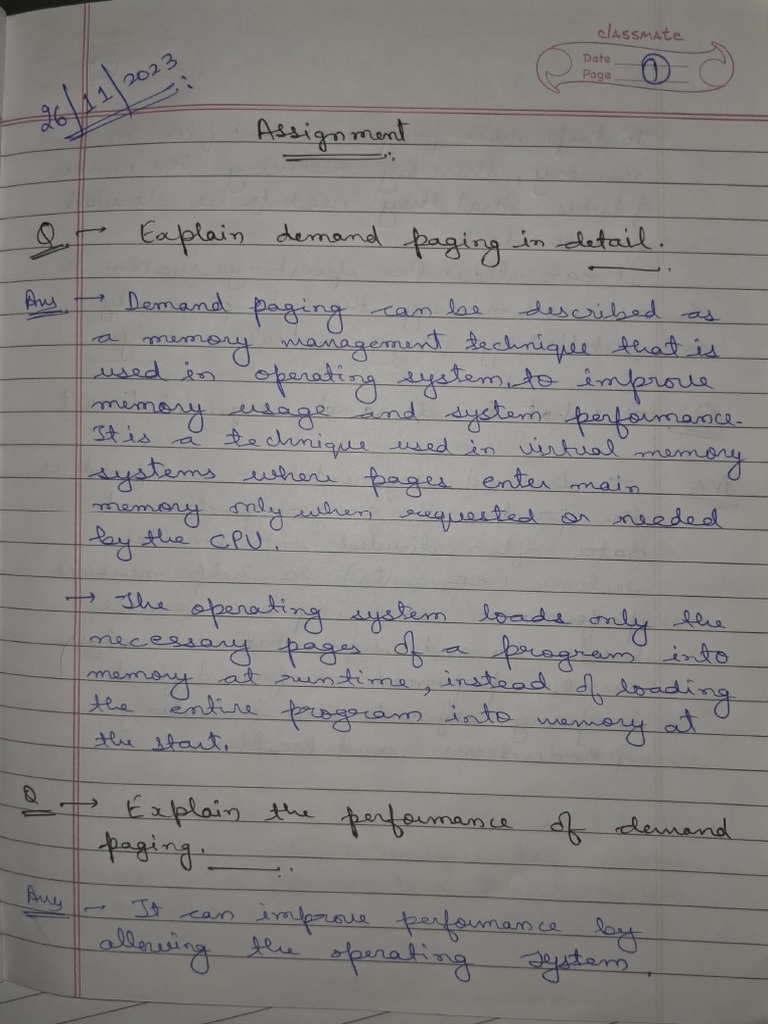 classmate
Date
Page 1
26/11/2023
Assignment
Q → Explain demand paging in detail.
Ans → Demand paging can be described as
a memory management technique that is
used in operating system, to improve
memory usage and system performance.
It is a technique used in virtual memory
systems where pages enter main
memory only when requested or needed
by the CPU.
→ The operating system loads only the
necessary pages of a program into
memory at runtime, instead of loading
the entire program into memory at
the start.
Q → Explain the performance of demand
paging.
Ans - It can improve performance by
allowing the operating system,